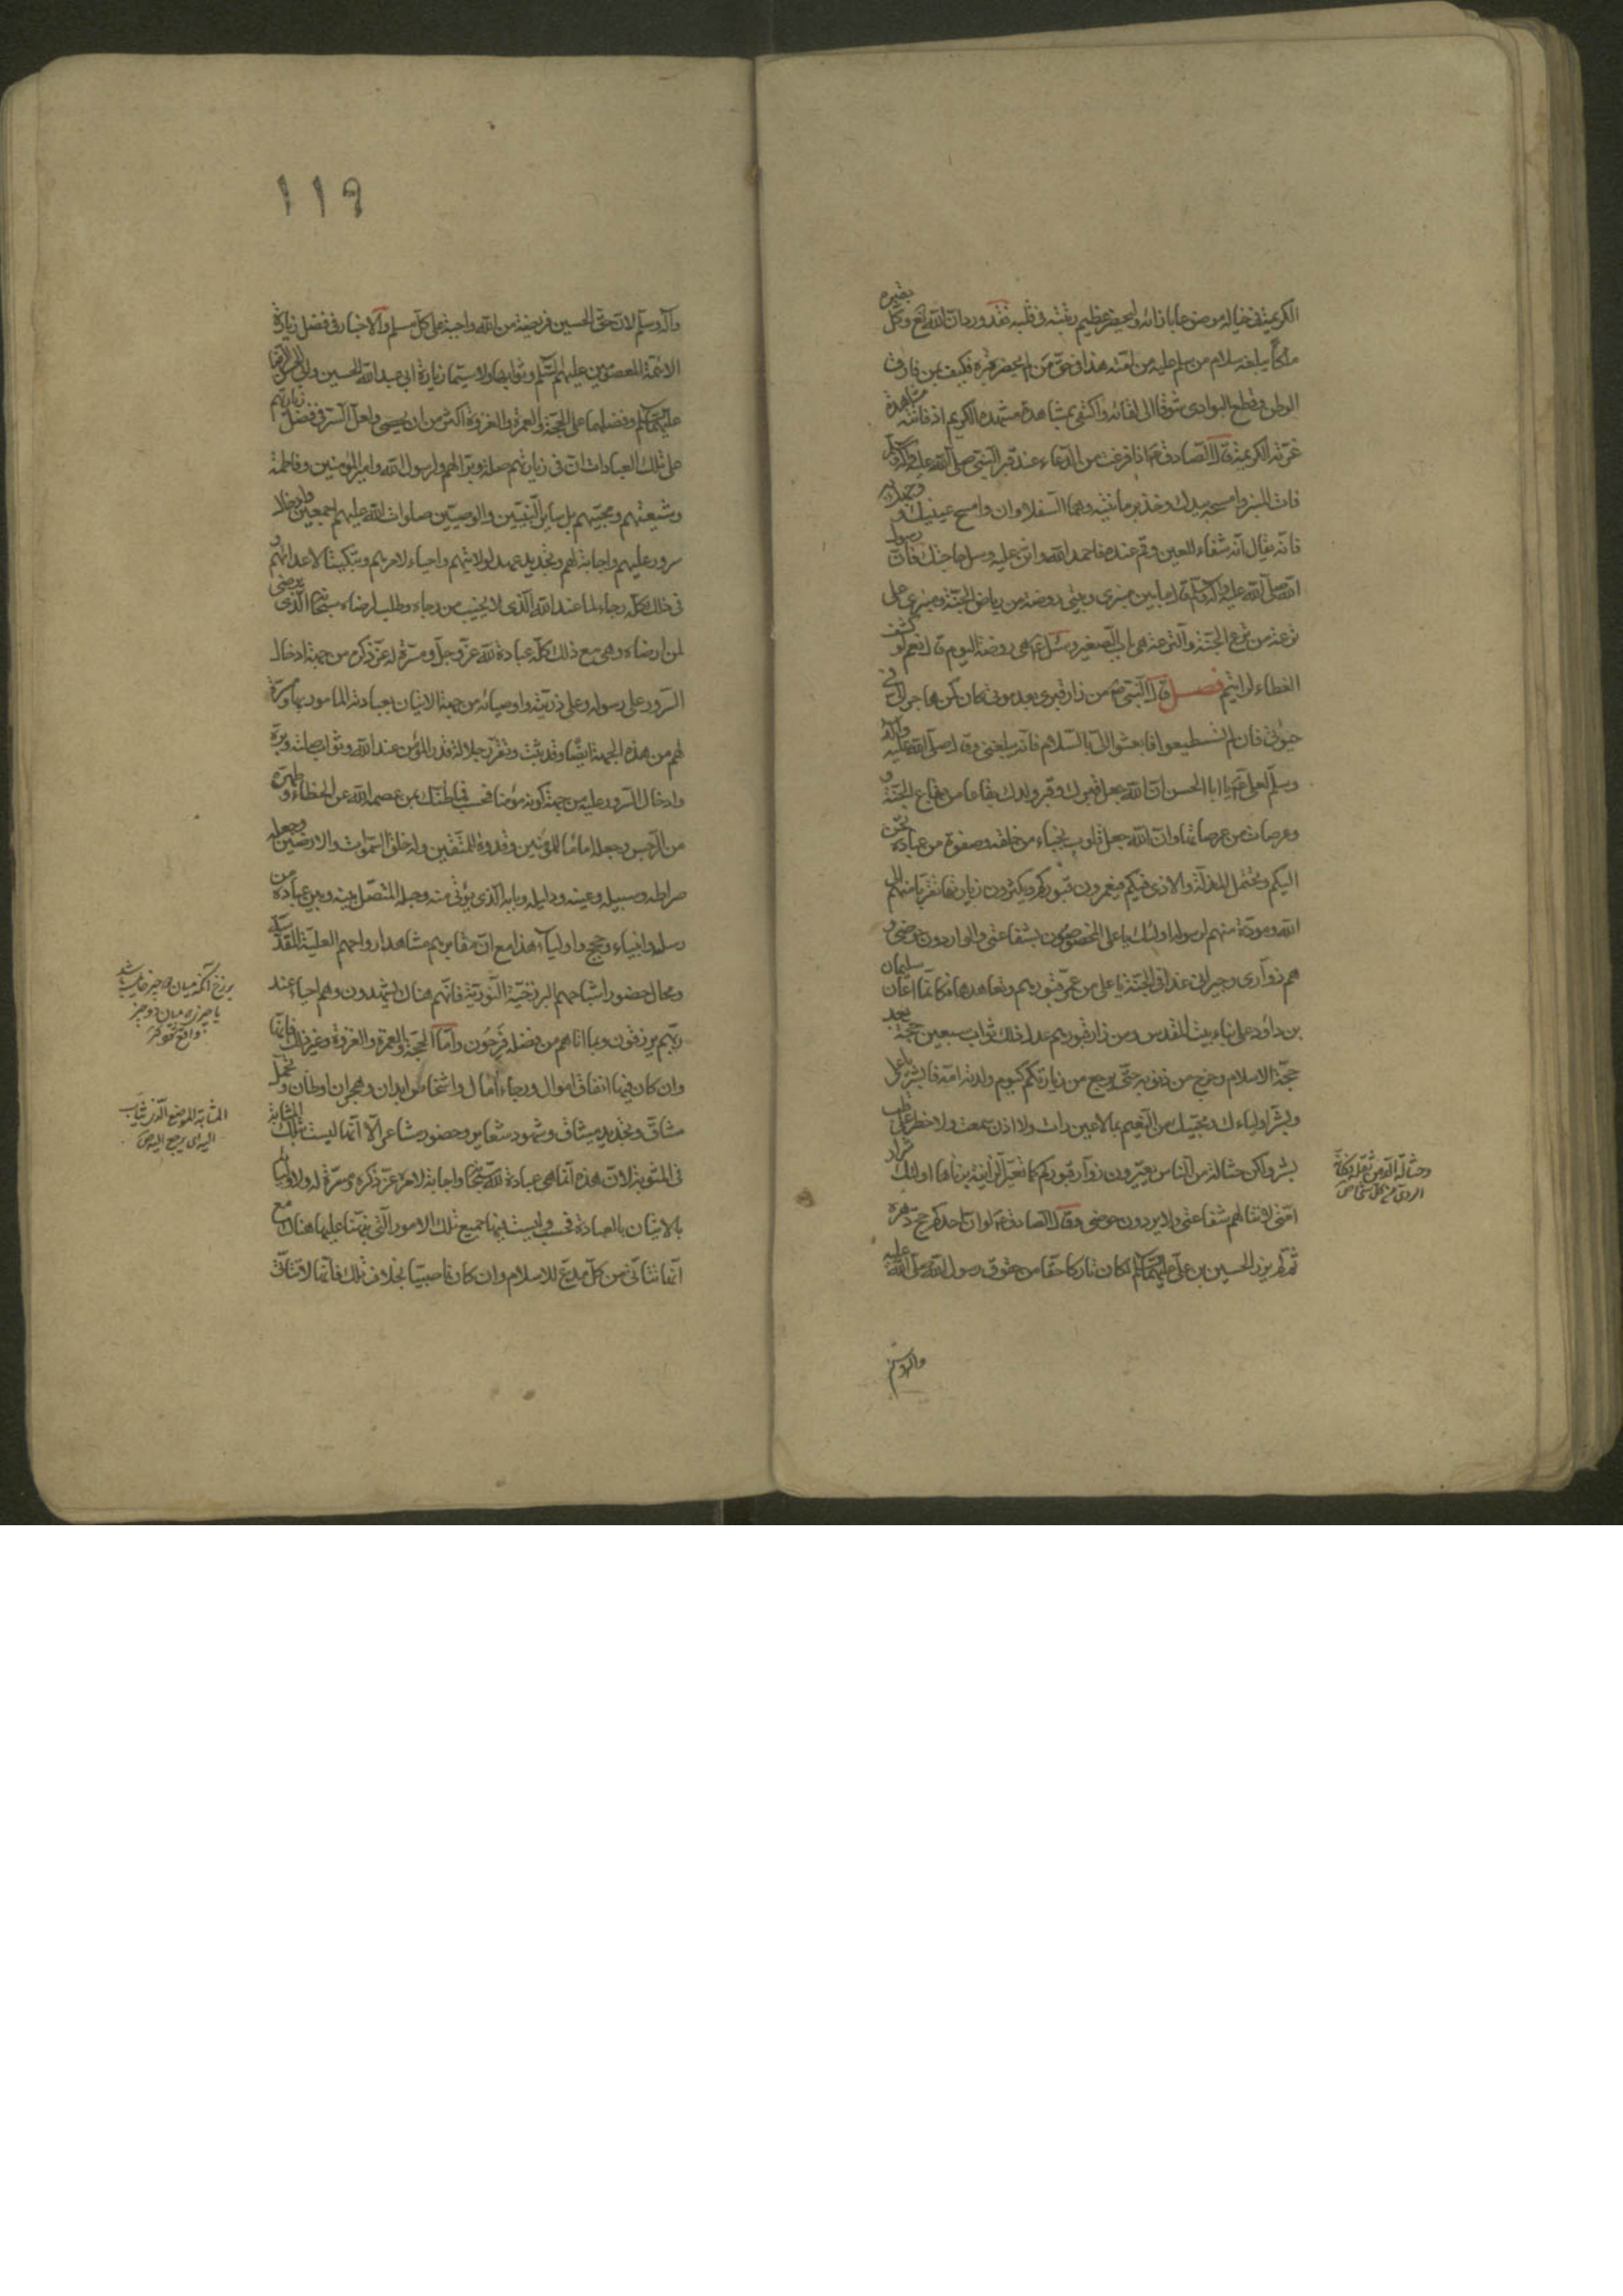 الكريمة في خيالك موضوعا بازائه واحضر عظيم رتبته في قلبه فقد ورد ان الله تع وكل بقبره
ملكا يبلغه سلام من سلم عليه من امته هذا في حق من لم يحضر قبره فكيف بمن فارق
الوطن وقطع البوادي شوقا الى لقائه واكتفى بمشاهدة مشهده الكريم اذ فاتته مشاهدة
غرته الكريمة قال الصادق ع اذا فرغت من الدعاء عند قبر النبي صلى الله عليه وآله وسلم
فات المنبر وامسحه بيدك وخذ برمانتيه وهما السفلاوان وامسح عينيك و وجهك به
فانه يقال انه شفاء للعين وقم عنده فاحمد الله واثن عليه وسل حاجتك فان رسول
الله صلى الله عليه وآله وسلم قال ما بين منبري وبيتي روضة من رياض الجنة ومنبري على
ترعة من ترع الجنة والترعة هي الباب الصغير وسئل ع اهي روضة اليوم قال نعم لو كشف
الغطاء لرايتم فصل قال النبي ص من زار قبري بعد موتي كان كمن هاجر الي في
حيوتي فان لم تستطيعوا فابعثوا الي بالسلام فانه يبلغني وقال صلى الله عليه وآله
وسلم لعلي ع يا ابا الحسن ان الله جعل قبرك وقبر ولدك بقاعا من بقاع الجنة و
وعرصات من عرصاتها وان الله جعل قلوب نجباء من خلقه وصفوة من عباده تحن
اليكم وتحتمل المذلة والاذى فيكم فيعمرون قبوركم ويكثرون زيارتها تقربا منهم الى
الله ومودة منهم لرسوله اولئك يا علي المخصوصون بشفاعتي والواردون حوضي و
هم زواري وجيراني غدا في الجنة يا علي من عمر قبورهم وتعاهدها فكانما اعان سليمان
بن داود على بناء بيت المقدس ومن زار قبورهم عدل ذلك ثواب سبعين حجة بعد
حجة الاسلام وخرج من ذنوبه حتى يرجع من زيارتكم كيوم ولدته امه فابشر يا علي
وبشر اولياءك ومحبيك من النعيم بما لا عين رات ولا اذن سمعت ولا خطر على قلب
بشر ولكن حثالة من الناس يعيرون زوار قبوركم كما تعير الزانية بزناها اولئك شرار
امتي لا تنالهم شفاعتي ولا يردون حوضي وقال الصادق ع لو ان احدكم حج دهره
ثم لم يزر الحسين بن علي عليهما السلام لكان تاركا حقا من حقوق رسول الله صلى الله عليه
وحثالة الدهن ثفله
وآله وسلم
١١٩
وآله وسلم لان حق الحسين فريضة من الله واجبة على كل مسلم والاخبار في فضل زيارة
الائمة المعصومين عليهم السلم وثوابها ولا سيما زيارة ابي عبد الله الحسين وابي الحسن الرضا
عليهما السلم وفضلها على الحجة والعمرة والغزوة اكثر من ان يحصى ولعل السر في فضل زيارتهم
على تلك العبادات ان في زيارتهم صلة وبرا لهم ولرسول الله وامير المؤمنين وفاطمة
وشيعتهم ومحبيهم بل ساير النبيين والوصيين صلوات الله عليهم اجمعين وادخالا
سرور عليهم واجابة لهم وتجديد عهد لولايتهم واحياء لامرهم وتبكيتا لاعدائهم و
في ذلك كله رجاء لما عند الله الذي لا يخيب من رجاه وطلب لرضاه سبحانه الذي يرضى
لمن ارضاه وهي مع ذلك كله عبادة لله عز وجل ومسرة له عز ذكره من جهة ادخال
السرور على رسوله وعلى ذريته واوصيائه من جهة الاتيان بعبادته المامور بها ومسرة
لهم من هذه الجهة ايضا وقد ثبت وتقرر جلالة قدر المؤمن عند الله وثواب صلته وبره
وادخال السرور عليه من جهة كونه مؤمنا فحسب فما ظنك بمن عصمه الله عن الخطاء و طهره
من الرجس وجعله اماما للمؤمنين وقدوة للمتقين وله خلق السموات والارضين وجعله
صراطه وسبيله وعينه ودليله وبابه الذي يؤتى منه وحبله المتصل بينه وبين عباده من
رسله وانبياء وحجج واولياء هذا مع ان مقابرهم مشاهد ارواحهم العلية المقدسة
ومحال حضور اشباحهم البرزخية النورية فانهم هناك يشهدون وهم احياء عند
ربهم يرزقون وبما اتاهم من فضله فرحون واما الحجة والعمرة والغزوة وغير ذلك فانها
وان كان فيها انفاق اموال ورجاء امال واشخاص ابدان وهجران اوطان و تحمل
مشاق وتجديد ميثاق وشهود شعاير وحضور مشاعر الا انها ليست بتلك المثابة
في المثوبة لان هذه انما هي عبادة لله سبحانه واجابة لامره عز ذكره ومسرة له ولاوليائه
بالاتيان بالعبادة فحسب وليست فيها جميع تلك الامور التي نبهنا عليها هناك مع
انها تتاتى من كل مدع للاسلام وان كان ناصبيا بخلاف تلك فانها لا تتاتى
برزخ آنكه ميان دو چيز حايل باشد
يا چيزى ميان دو چيز
واقع شود كنز
المثابة الموضع الذي يثاب
اليه اى يرجع اليه ص